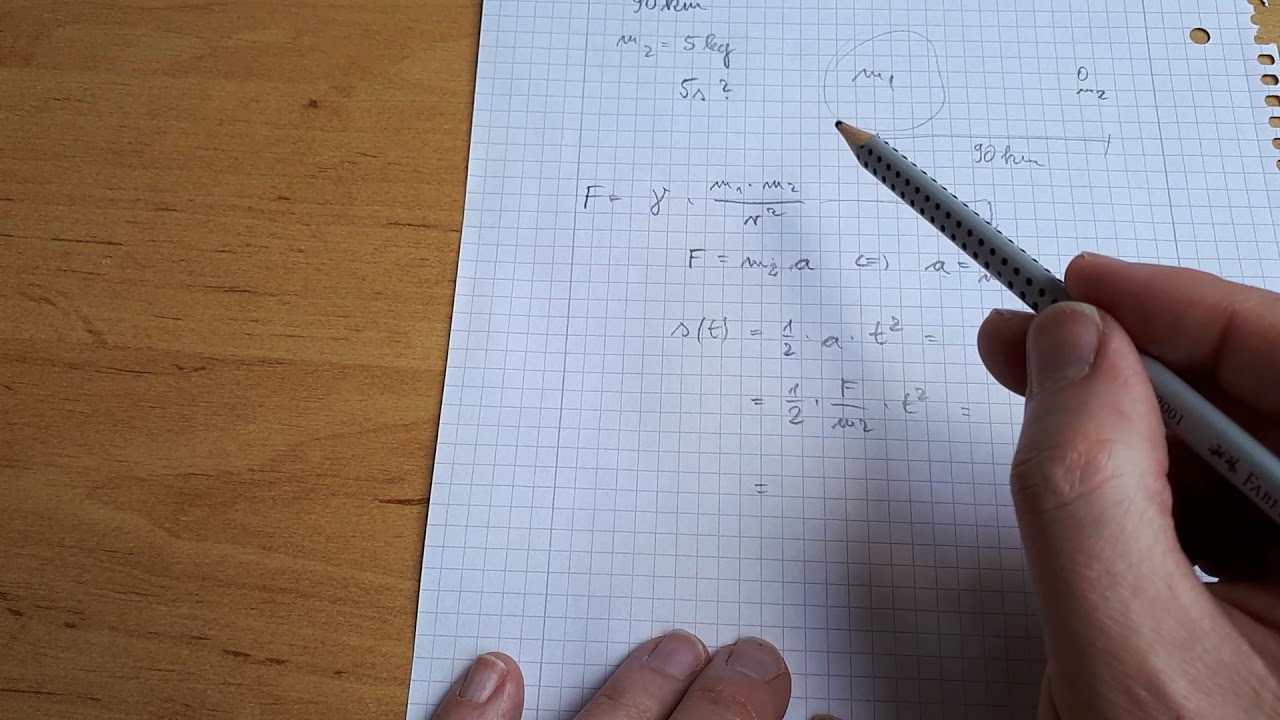 90 km
m₂ = 5 kg
5s ?
m₁
0
m₂
90 km
F = γ · m₁ · m₂ / r²
F = m₂ · a <=> a =
s(t) = 1/2 · a · t² =
= 1/2 · F/m₂ · t² =
=
2001
FABE